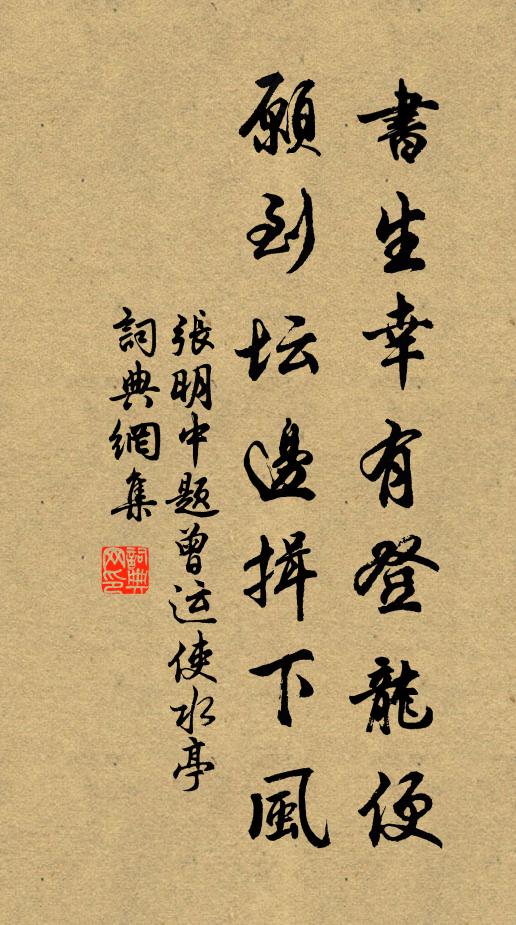 書生幸有登龍便
願到坛邊揖下風
張明中題曾运使水亭
詞典網集
詞典网印